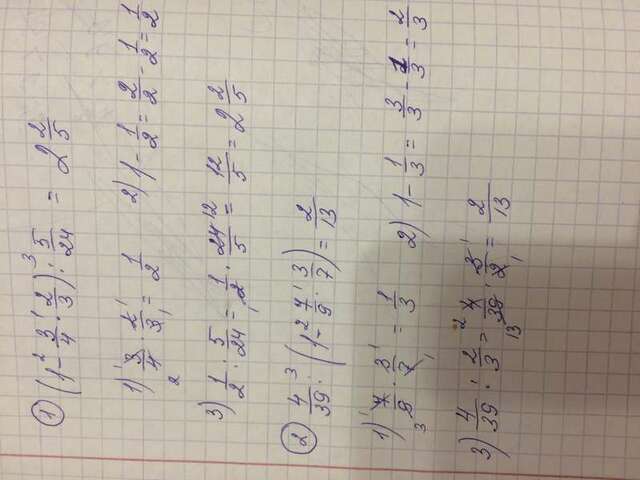 ① (1 -² 3/4 ·¹ 2/3) :³ 5/24 = 2 2/5
1) 3/4 · 2/3 = 1/2   2) 1 - 1/2 = 2/2 - 1/2 = 1/2
3) 1/2 : 5/24 = 1/2 · 24/5 = 12/5 = 2 2/5
② 4/39 :³ (1 -² 7/9 ·¹ 3/7) = 2/13
1) 7/9 · 3/7 = 1/3   2) 1 - 1/3 = 3/3 - 1/3 = 2/3
3) 4/39 : 2/3 = 4/39 · 3/2 = 2/13